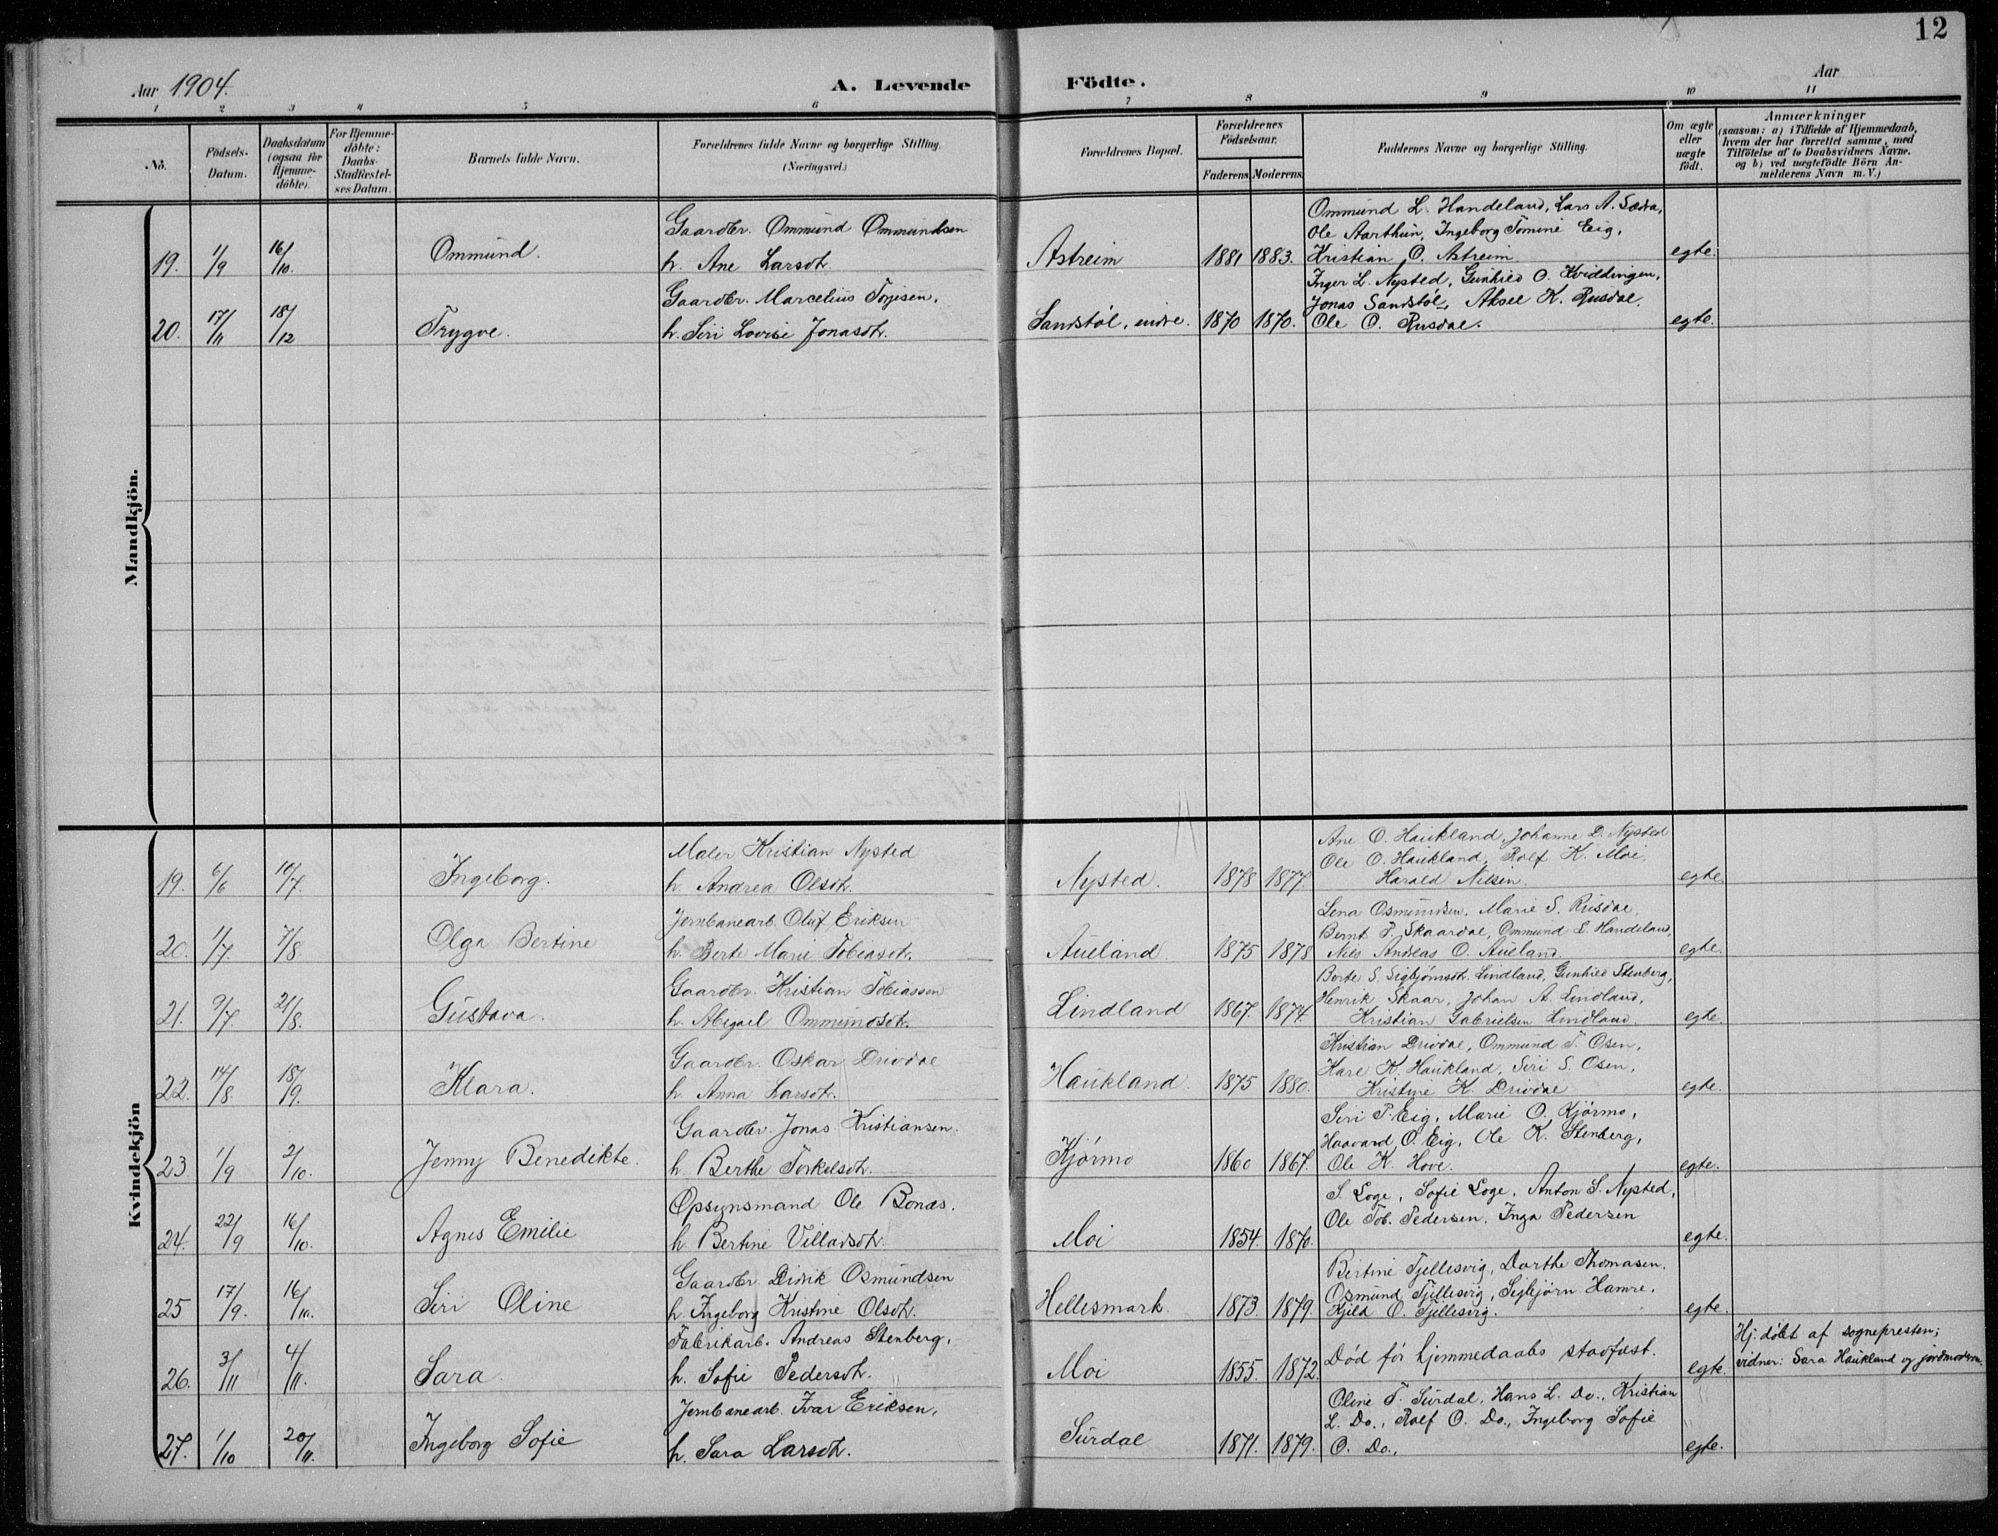 12
Aar 1904. A. Levende Födte. Aar
1 2 3 4 5 6 7 8 9 10 11
Nö.
Födsels-Datum.
Daabsdatum (ogsaa för Hjemme-döbte).
For Hjemme-döbte: Daabs-Stadfæstel-ses Datum.
Barnets fulde Navn.
Forældrenes fulde Navne og borgerlige Stilling. (Næringsvei.)
Forældrenes Bopæl.
Forældrenes Födselsaar.
Faderens. Moderens.
Faddernes Navne og borgerlige Stilling.
Om ægte eller uægte födt.
Anmærkninger
(saasom: a) i Tilfælde af Hjemmedaab,
hvem der har forrettet samme, med
Tilföielse af to Daabsvidners Navne.
og b) ved uægtefödte Börn An-
melderens Navn m. V.)
Mandkjön.
Gaardbr. Ommund Ommundsen
Ommund L. Handeland, Lars A. Sædra,
Ole Aarthun, Ingeborg Tomine Eig,
19. 1/9 16/10 Ommund. h. Ane Larsdt. Astreim 1881 1883. Kristian O. Astreim. egte.
Gaardbr. Marcelius Torjesen,
Inger L. Nysted, Gunhild O. Kviddingen,
Jonas Sandstøl, Aksel K. Rusdal,
20. 17/11 18/12 Trygve. h. Siri Lovise Jonasdt. Sandstøl, indre. 1870 1870. Ole O. Rusdal. egte.
Kvindekjön
Maler Kristian Nysted
Ane O. Haukland, Johanne D. Nysted
Ole O. Haukland, Rolf K. Moi,
19. 6/6 10/7. Ingeborg. h. Andrea Olsdt. Nysted. 1878 1877. Harald Nilsen. egte.
Jernbanearb. Oluf Eriksen
Lena Osmundsen, Marie S. Rusdal,
Bernt P. Skaardal, Ommund L. Handeland,
20. 1/7. 7/8 Olga Bertine h. Berte Marie Tobiasdt. Aueland. 1875 1878 Nils Andreas O. Aueland. egte.
Gaardbr. Kristian Tobiassen
Borte S. Sigbjørnsdt. Lindland, Gunhild Stenberg,
Henrik Skaar, Johan A. Lindland,
21. 9/7 21/8. Gustava. h. Abigael Ommundsdt. Lindland 1867. 1874. Kristian Gabrielsen Lindland. egte.
Gaardbr. Oskar Drivdal
Kristian Drivdal, Ommund T. Osen,
Karl K. Haukland, Siri S. Osen,
22. 14/8. 18/9. Klara. h. Anna Larsdt. Haukland. 1875 1880. Kristine K. Drivdal egte.
Gaardbr. Jonas Kristiansen.
Siri P. Eig, Marie O. Kjørmo,
Haavard O. Eig, Ole K. Stenberg,
23. 1/9 2/10. Jenny Benedikte. h. Berthe Torkelsdt. Kjørmo 1860 1867. Ole K. Hove. egte.
Opsynsmand Ole Bonås.
S. Loge, Sofie Loge, Anton S. Nysted,
Ole Tob. Pedersen, Inga Pedersen
24. 22/9 16/10. Agnes Emilie h. Bertine Villadsdt. Moi 1854. 1870. egte.
Gaardbr. Didrik Osmundsen
Bertine Fjellesvig, Dorthe Thomasen,
Osmund Fjellesvig, Sigbjørn Hamre,
25 17/9. 16/10. Siri Oline h. Ingeborg Kristine Olsdt. Hellesmark. 1873. 1879. Kjild O. Fjellesvig. egte.
Fabrikarb. Andreas Stenberg,
Hj. døbt af sognepresten;
26. 3/11 4/11. Sara. h. Sofie Pedersdt. Moi 1855. 1872. Død før hjemmedaabs stadfæst. egte. vidner: Sara Haukland og jordmoderen.
Jernbanearb. Ivar Eriksen,
Oline T. Surdal, Hans L. Do., Kristian
L. Do., Rolf O. Do., Ingeborg Sofie
27. 1/10 20/11. Ingeborg Sofie h. Sara Larsdt. Surdal 1871. 1879. O. Do., egte.